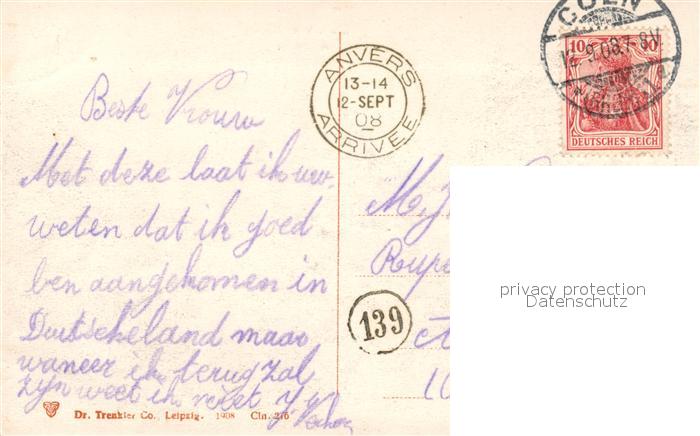 CÖLN
12.9.08.7-8V
10 10
DEUTSCHES REICH
ANVERS
13-14
12-SEPT
08
ARRIVEE
Beste Vrouw
Met deze laat ik uw
weten dat ik goed
ben aangekomen in
Duitscheland maar
waneer ik terug zal
zijn weet ik niet
139
privacy protection
Datenschutz
Dr. Trenkler Co., Leipzig. 1908 Cln. 276